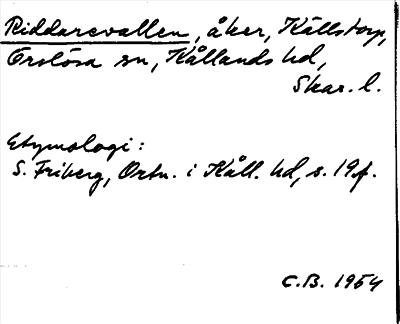 Riddarevallen, åker, Källstorp,
Örslösa sn, Kållands hd,
Skar. l.
Etymologi:
S. Friberg, Ortn. i Kåll. hd, s. 19f.
C.B. 1954